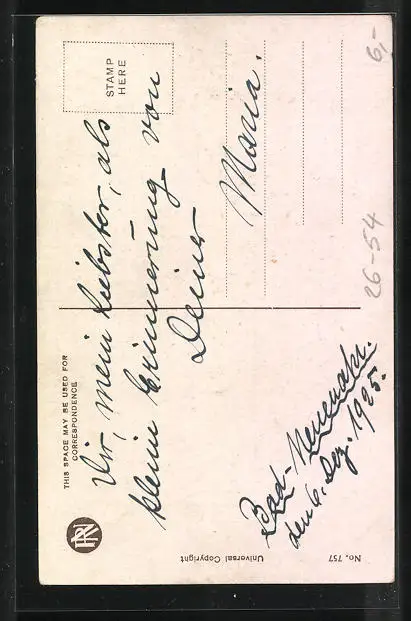 THIS SPACE MAY BE USED FOR
CORRESPONDENCE
STAMP
HERE
Dir, mein Liebster, als
kleine Erinnerung von
Deiner
Maria.
Bad-Neuenahr.
den 6. Dez. 1925.
6,-
26-54
No. 757
Universal Copyright